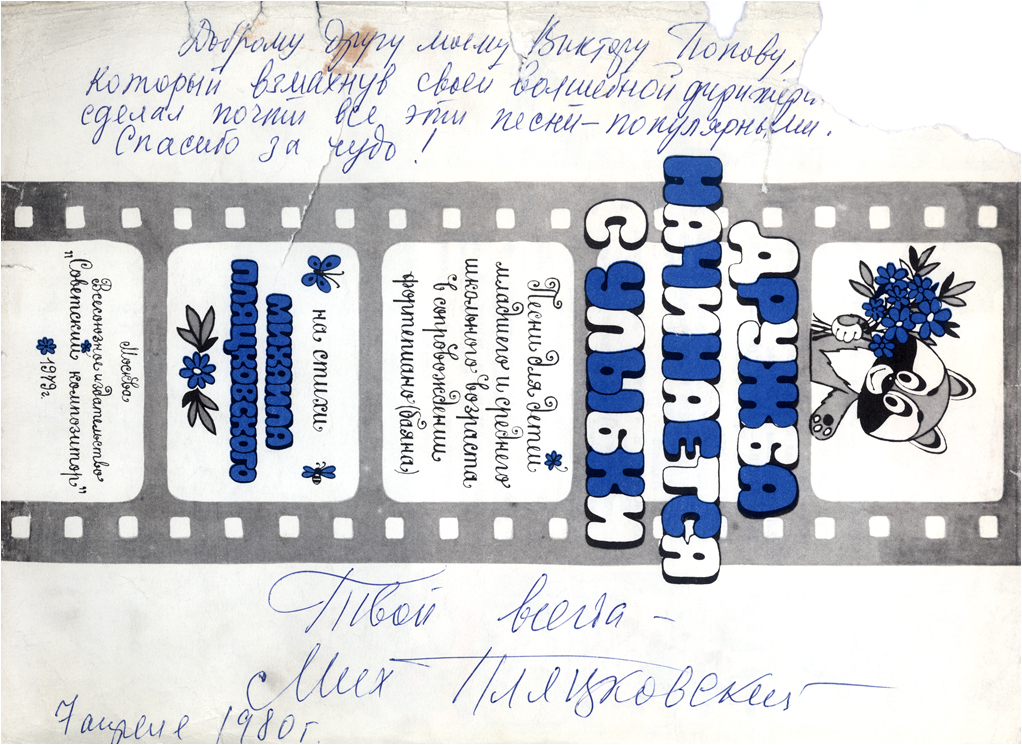 Доброму другу моему Виктору Попову,
который взмахнув своей волшебной дириж
сделал почти все эти песни – популярными.
Спасибо за чудо!
ДРУЖБА
НАЧИНАЕТСЯ
С УЛЫБКИ
Песни для детей
младшего и среднего
школьного возраста
в сопровождении
фортепиано (баяна)
на стихи
МИХАИЛА
ПЛЯЦКОВСКОГО
Москва
Всесоюзное издательство
„Советский композитор"
1979г.
Твой всегда –
Мих Пляцковский
7 апреля 1980 г.